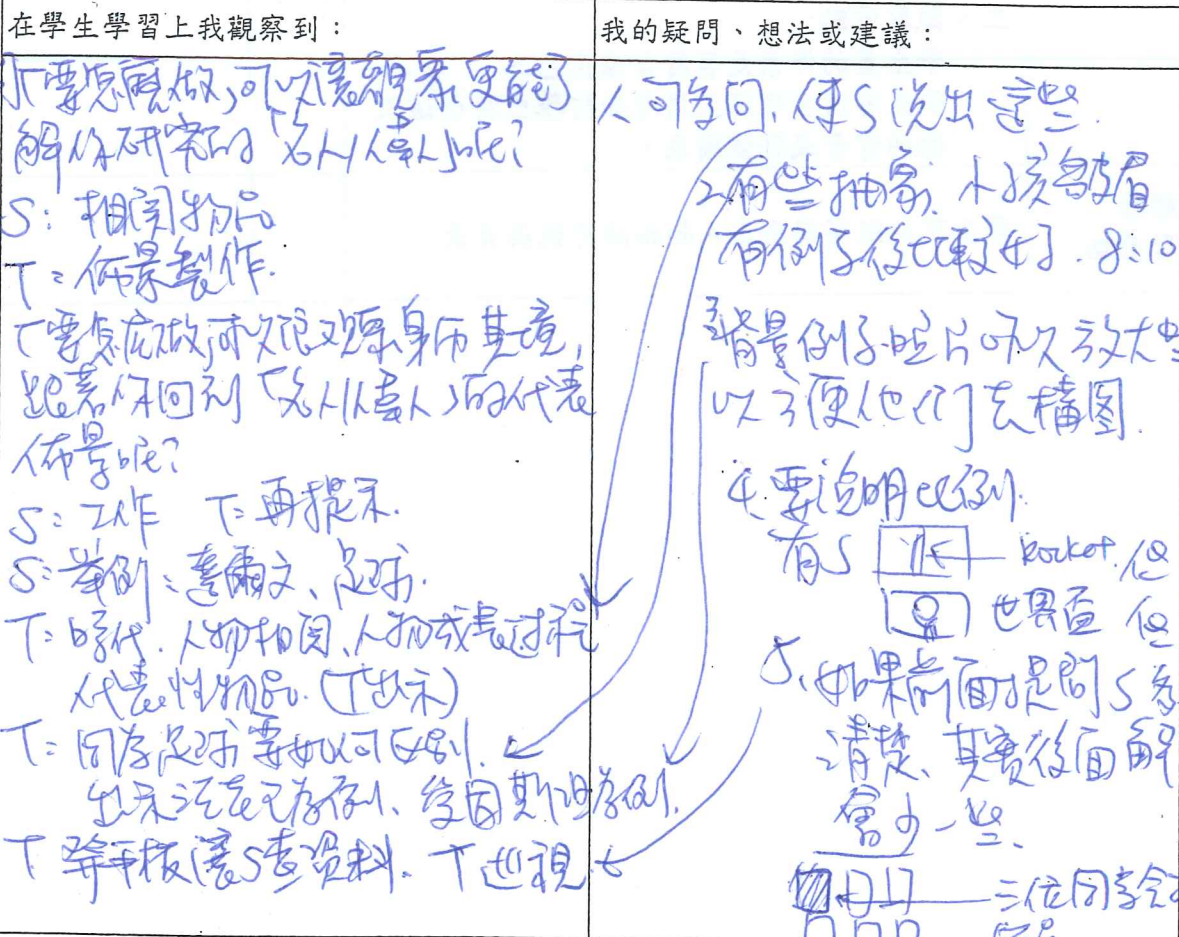 在學生學習上我觀察到：
T要怎麼做，可以讓觀眾更能了
解你研究的「名人/偉人」呢？
S：相關物品
T：佈景製作.
T要怎庅做，可以让观眾身历其境，
跟著你回到「名人/偉人」的代表
佈景呢？
S：工作 T：再提示.
S：舉例：達爾文、足球.
T：時代.人物相関、人物成長过程
代表性物品.(T出示)
T：同為足球要如何区别.
出示法老王為例、愛因斯坦為例.
T 發平板讓S查資料. T巡視
我的疑問、想法或建議：
1.可多問，使S說出這些.
2.有些抽象，小孩會皺眉
有例子後比較好. 8:10
3.背景例子照片可以放大些
以方便他们去構图.
4.要說明比例.
有S rocket.但
世界盃 但
5.如果前面提問S
清楚、其實後面解
會少一些.
三位同學